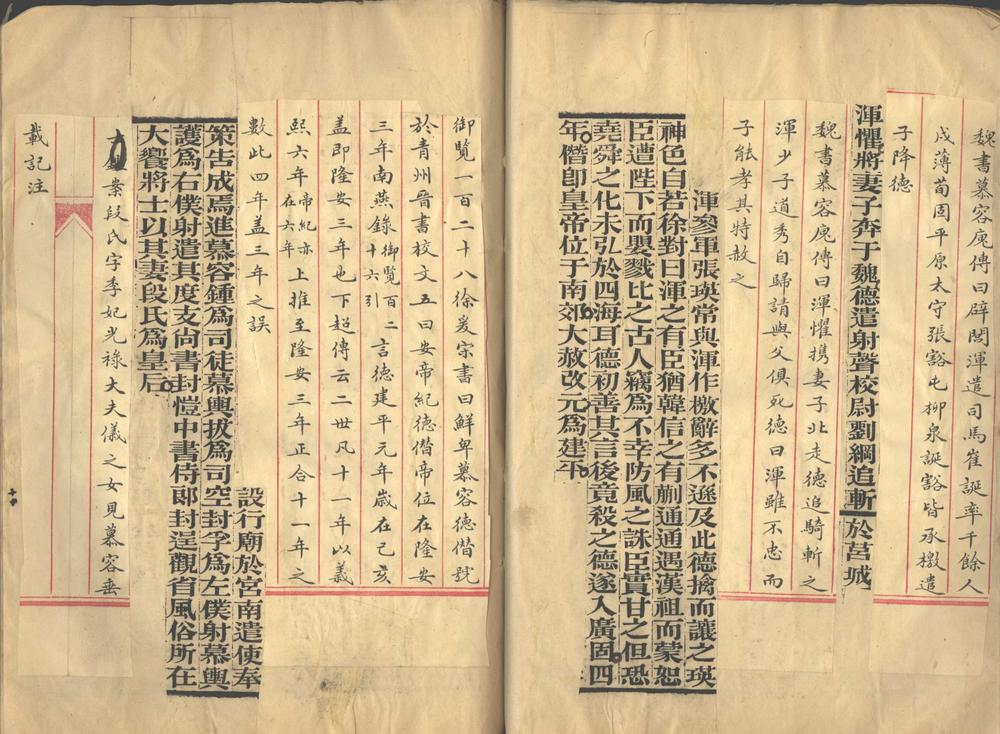 魏書慕容廆傳曰辟閭渾遣司馬崔誕率千餘人
戍薄荀固平原太守張豁屯柳泉誕豁皆承檄遣
子降德
渾懼將妻子奔于魏德遣射聲校尉劉綱追斬於莒城
魏書慕容廆傳曰渾懼攜妻子北走德追騎斬之
渾少子道秀自歸請與父俱死德曰渾雖不忠而
子能孝其特赦之
渾參軍張瑛常與渾作檄辭多不遜及此德擒而讓之瑛
神色自若徐對曰渾之有臣猶韓信之有蒯通通遇漢祖而蒙恕
臣遭陛下而嬰戮比之古人竊為不幸防風之誅臣實甘之但恐
堯舜之化未弘於四海耳德初善其言後竟殺之德遂入廣固四
年僭即皇帝位于南郊大赦改元為建平
御覽一百二十八徐爰宋書曰鮮卑慕容德僭號
於青州晉書校文五曰安帝紀德僭帝位在隆安
三年南燕錄御覽百二十六引言德建平元年歲在己亥
蓋即隆安三年也下超傳云二世凡十一年以義
熙六年帝紀亦在六年上推至隆安三年正合十一年之
數此四年蓋三年之誤
設行廟於宮南遣使奉
策告成焉進慕容鍾為司徒慕輿拔為司空封孚為左僕射慕輿
護為右僕射遣其度支尚書封愷中書侍郎封逞觀省風俗所在
大饗將士以其妻段氏為皇后
案段氏字季妃光祿大夫儀之女見慕容垂
載記注